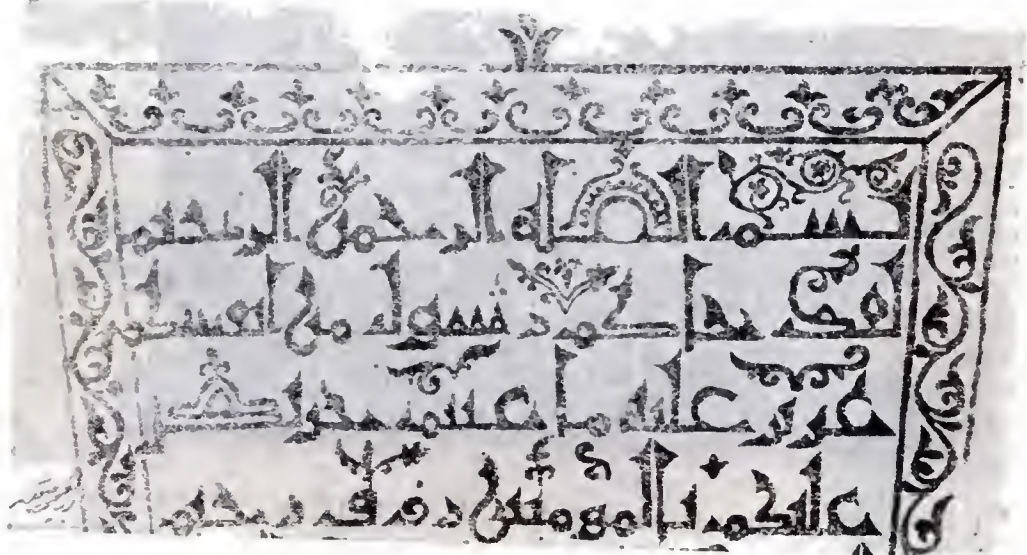 بسم الله الرحمن الرحيم
لقد جاكم رسول من انفسكم
عزيز عليه ما عنتم حريص
عليكم بالمومنين روف رحيم